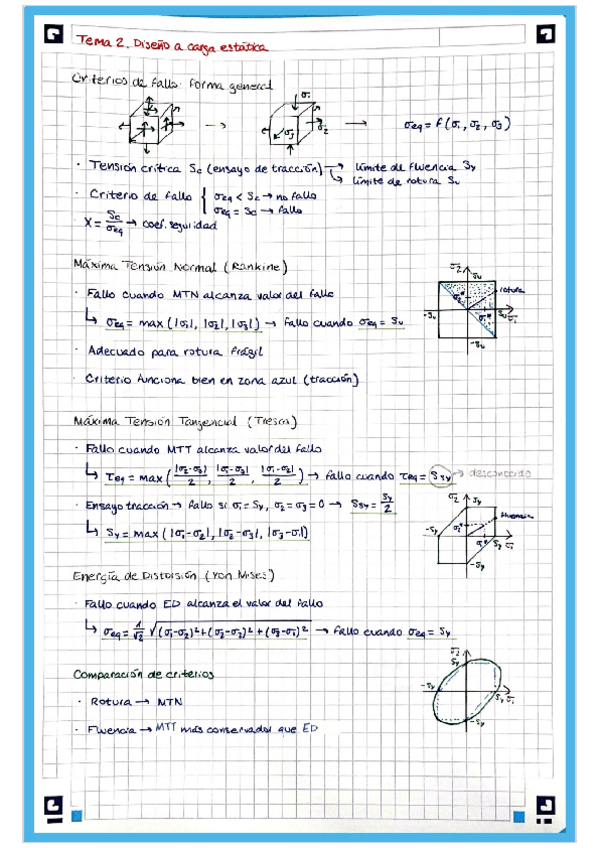 Tema 2. Diseño a carga estática
Criterios de fallo: forma general
σ₁
σ₂
σ₃
σeq = f(σ₁, σ₂, σ₃)
· Tensión crítica Sc (ensayo de tracción) → límite de fluencia Sy
→ límite de rotura Su
· Criterio de fallo { σeq < Sc → no fallo
σeq = Sc → fallo
· X = Sc/σeq → coef. seguridad
Máxima Tensión Normal (Rankine)
· Fallo cuando MTN alcanza valor del fallo
↳ σeq = max (|σ₁|, |σ₂|, |σ₃|) → fallo cuando σeq = Su
· Adecuado para rotura frágil
· Criterio funciona bien en zona azul (tracción)
σ₂
Su
rotura
-Su
Su
σ₁
-Su
Máxima Tensión Tangencial (Tresca)
· Fallo cuando MTT alcanza valor del fallo
↳ τeq = max (|σ₂-σ₃|/2, |σ₁-σ₃|/2, |σ₁-σ₂|/2) → fallo cuando τeq = Ssy → desconocido
· Ensayo tracción → fallo si σ₁ = Sy, σ₂ = σ₃ = 0 → Ssy = Sy/2
↳ Sy = max (|σ₁-σ₂|, |σ₂-σ₃|, |σ₃-σ₁|)
σ₂
Sy
fluencia
-Sy
Sy
σ₁
-Sy
Energía de Distorsión (Von Mises)
· Fallo cuando ED alcanza el valor del fallo
↳ σeq = 1/√2 √(σ₁-σ₂)²+(σ₂-σ₃)²+(σ₃-σ₁)² → fallo cuando σeq = Sy
σ₂
Sy
-Sy
Sy
σ₁
-Sy
Comparación de criterios
· Rotura → MTN
· Fluencia → MTT más conservador que ED